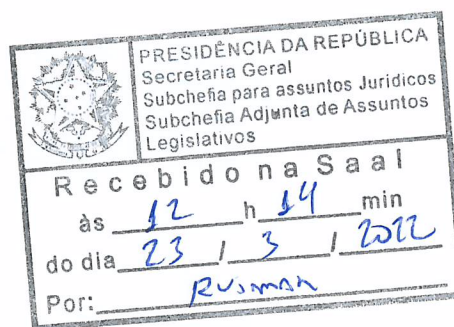 PRESIDÊNCIA DA REPÚBLICA
Secretaria Geral
Subchefia para assuntos Jurídicos
Subchefia Adjunta de Assuntos
Legislativos
Recebido na Saal
às 12 h 14 min
do dia 23 / 3 / 2022
Por: